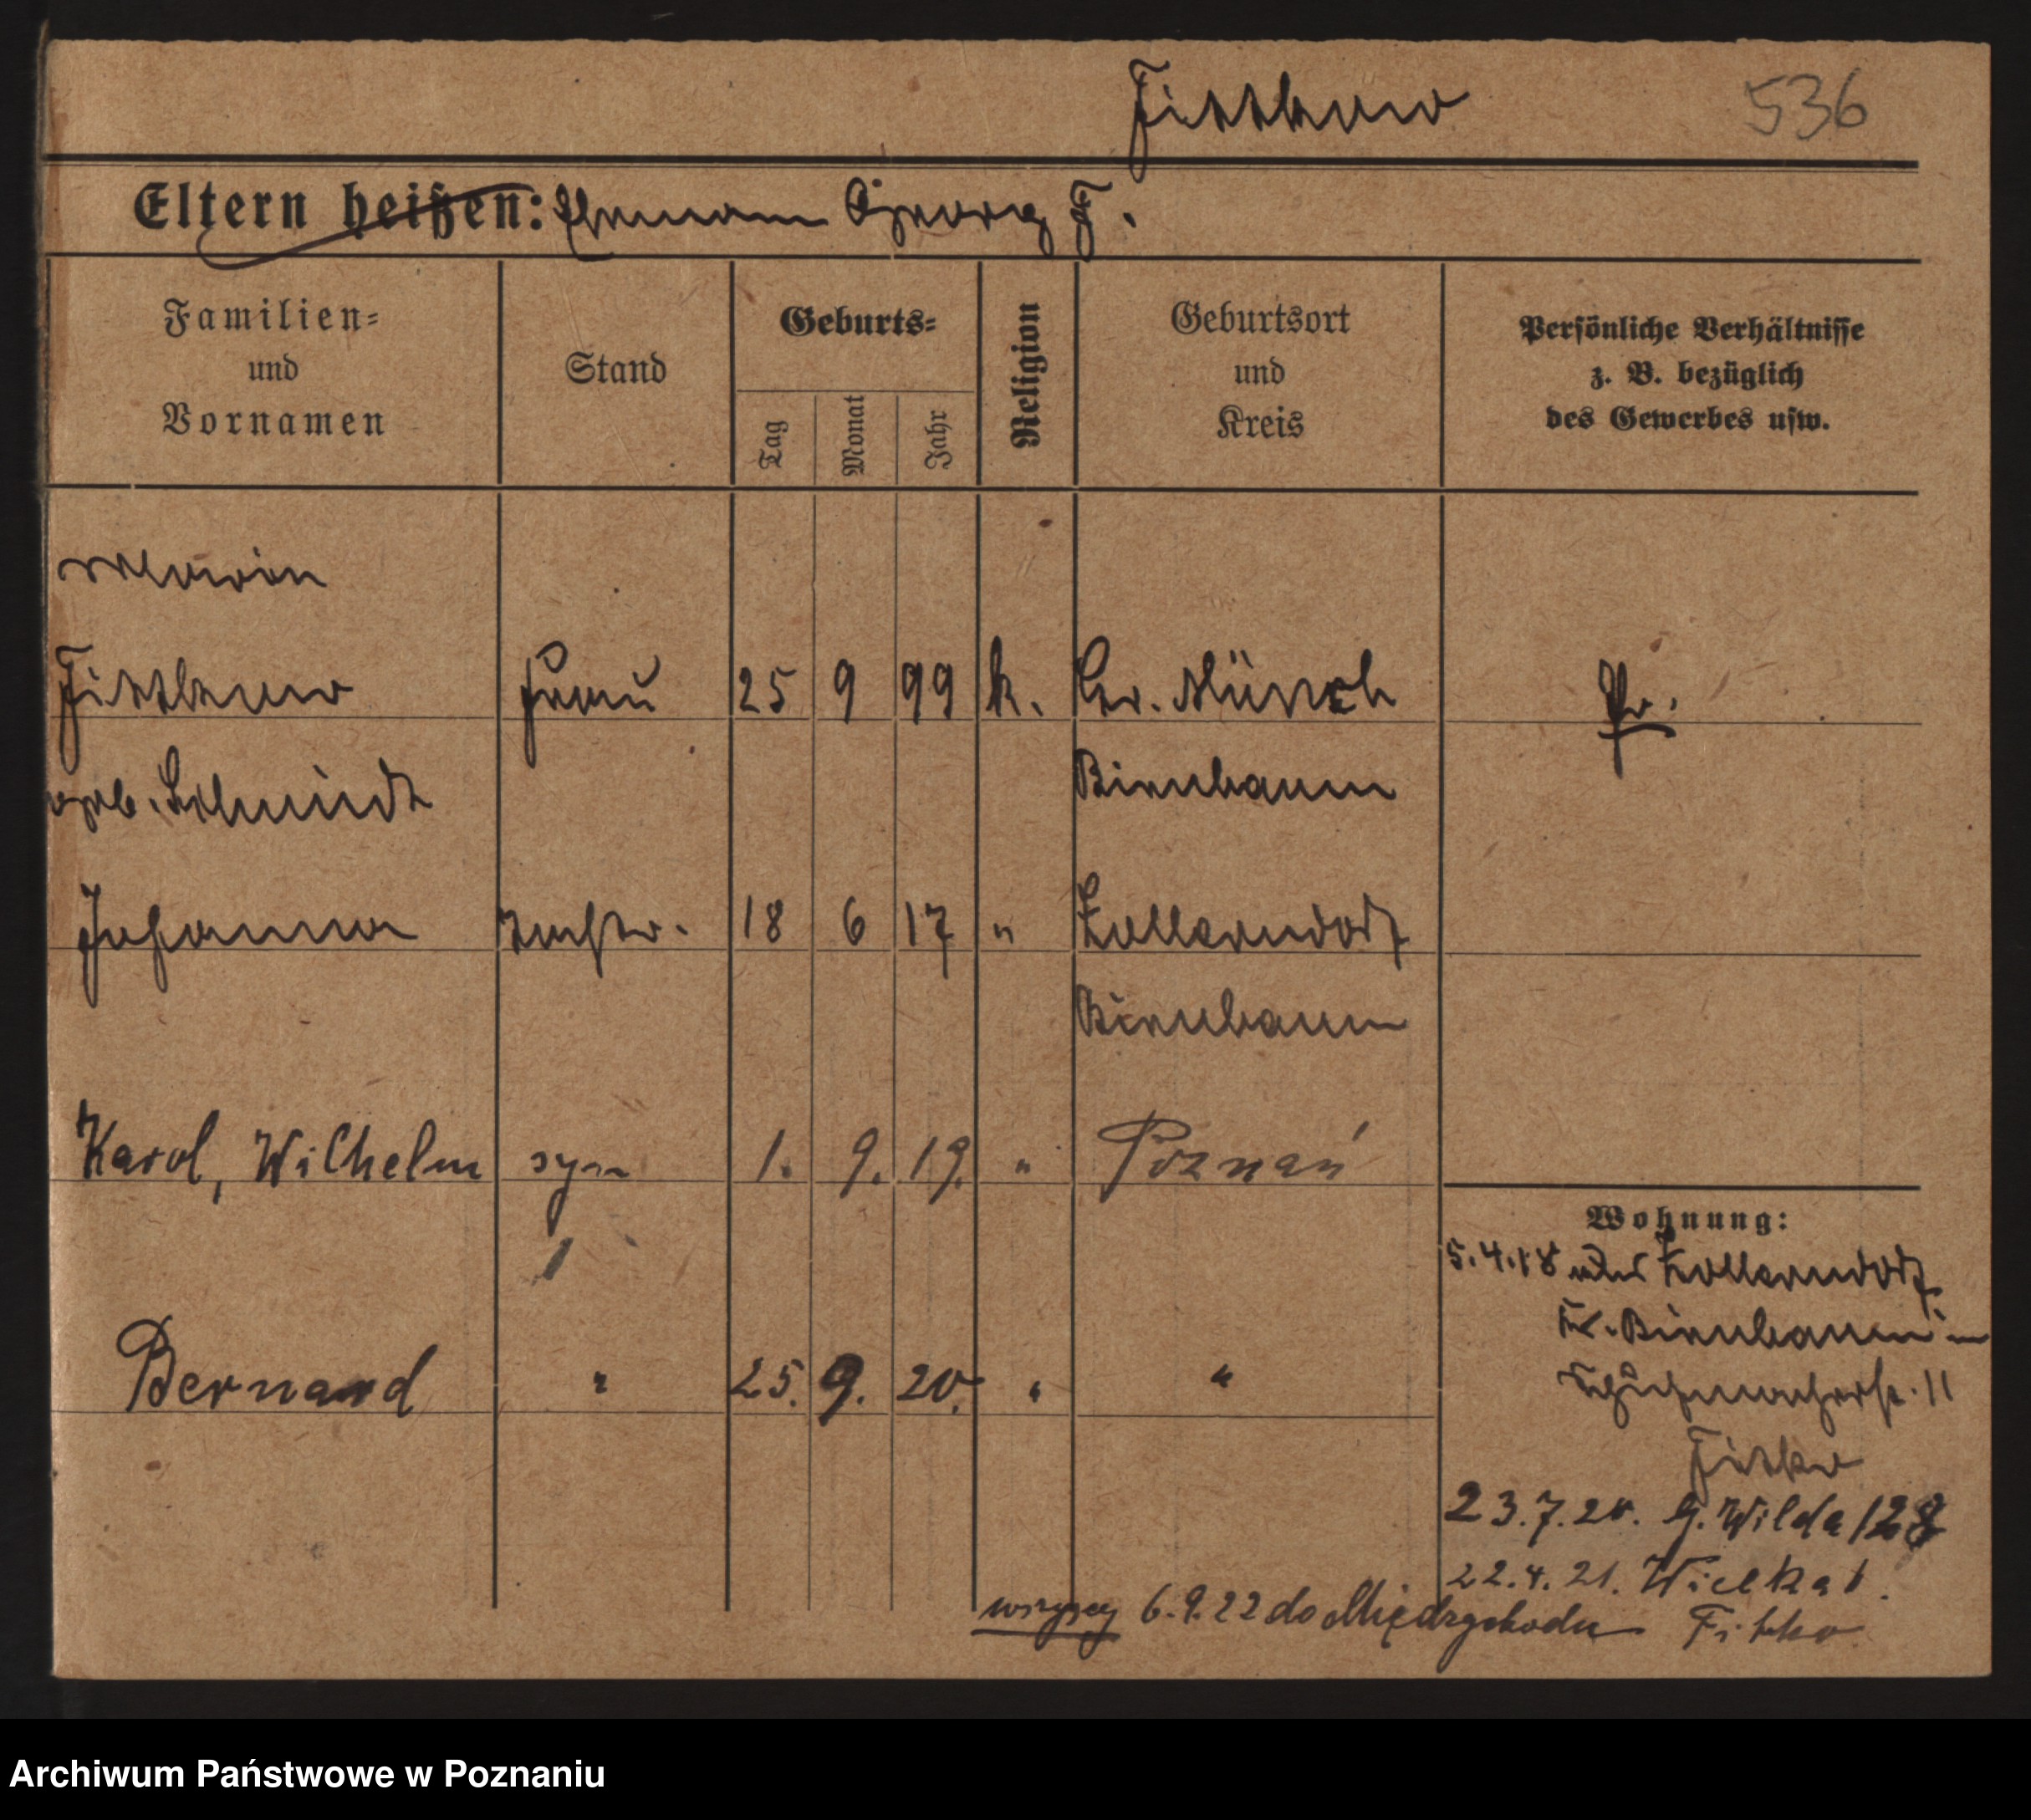 Fittkau
536
Eltern heißen: Ehemann Georg F.
Familien=
und
Vornamen
Stand
Geburts=
Tag
Monat
Jahr
Religion
Geburtsort
und
Kreis
Persönliche Verhältnisse
z. B. bezüglich
des Gewerbes usw.
Fittkau Frau 25 9 99 k. Gr. Münche Pr.
geb. Schmidt Birnbaum
Johanna Tochter. 18 6 17 " Kollerndorf
Birnbaum
Karol, Wilhelm syn 1. 9. 19. " Poznań
Bernard " 25. 9. 20. " "
Wohnung:
5.4.18 aus Kollerndorf
Kr. Birnbaum in
11
23.7.20. G. Wilda 128
22.4.21.
wszyscy 6.9.22 do Międzychodu
Archiwum Państwowe w Poznaniu